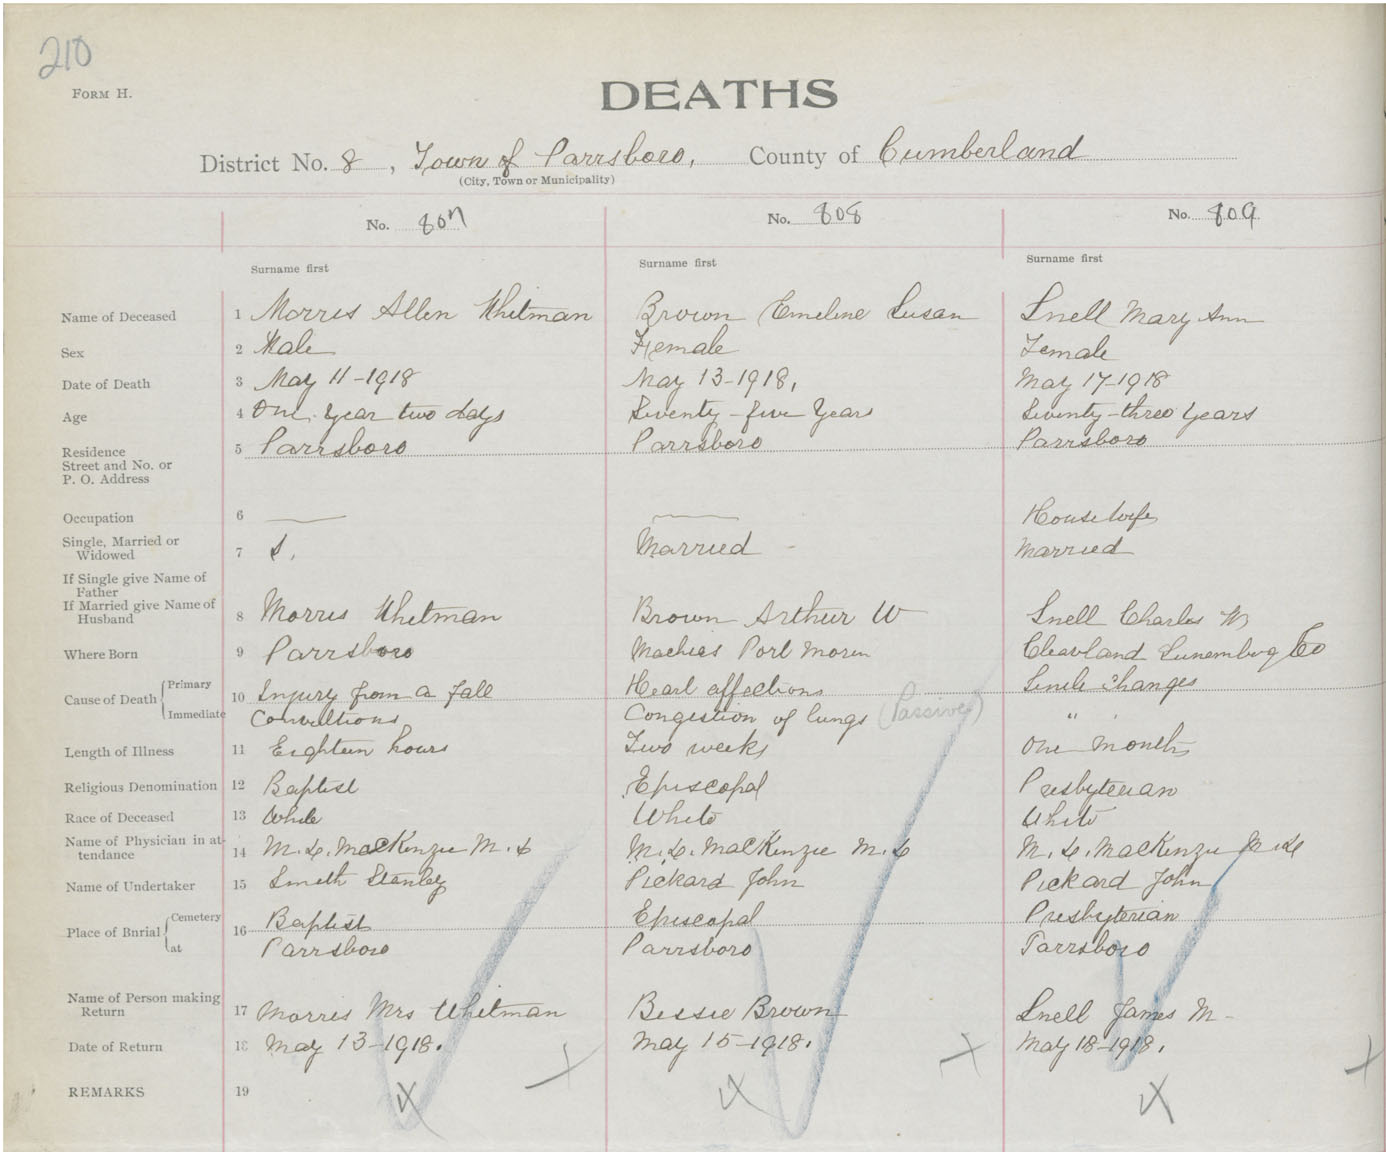 210
FORM H.
DEATHS
District No. 8, Town of Parrsboro, County of Cumberland
(City, Town or Municipality)
No. 807 No. 808 No. 809
Surname first Surname first Surname first
Name of Deceased 1 Morris Allen Whitman Brown Emeline Susan Snell Mary Ann
Sex 2 Male Female Female
Date of Death 3 May 11-1918 May 13-1918, May 17-1918
Age 4 One Year two days Seventy-five Years Seventy-three Years
Residence
Street and No. or
P. O. Address 5 Parrsboro Parrsboro Parrsboro
Occupation 6 Housewife
Single, Married or
Widowed 7 S, Married - Married
If Single give Name of
Father
If Married give Name of
Husband 8 Morris Whitman Brown Arthur W Snell Charles W
Where Born 9 Parrsboro Machias Port Cleavland Lunemburg Co
Cause of Death Primary 10 Injury from a fall Heart affections Senile Changes
Immediate Convultions Congestion of lungs (Passive) "
Length of Illness 11 Eighteen hours Two weeks One month
Religious Denomination 12 Baptist Episcopal Presbyterian
Race of Deceased 13 White White White
Name of Physician in at-
tendance 14 M.D. MacKenzie M.D M.D. MacKenzie M.D M.D. MacKenzie M.D
Name of Undertaker 15 Smith Stanley Pickard John Pickard John
Place of Burial Cemetery 16 Baptist Episcopal Presbyterian
at Parrsboro Parrsboro Parrsboro
Name of Person making
Return 17 Morris Mrs Whitman Bessie Brown Snell James M-
Date of Return 18 May 13-1918. May 15-1918. May 18-1918.
REMARKS 19